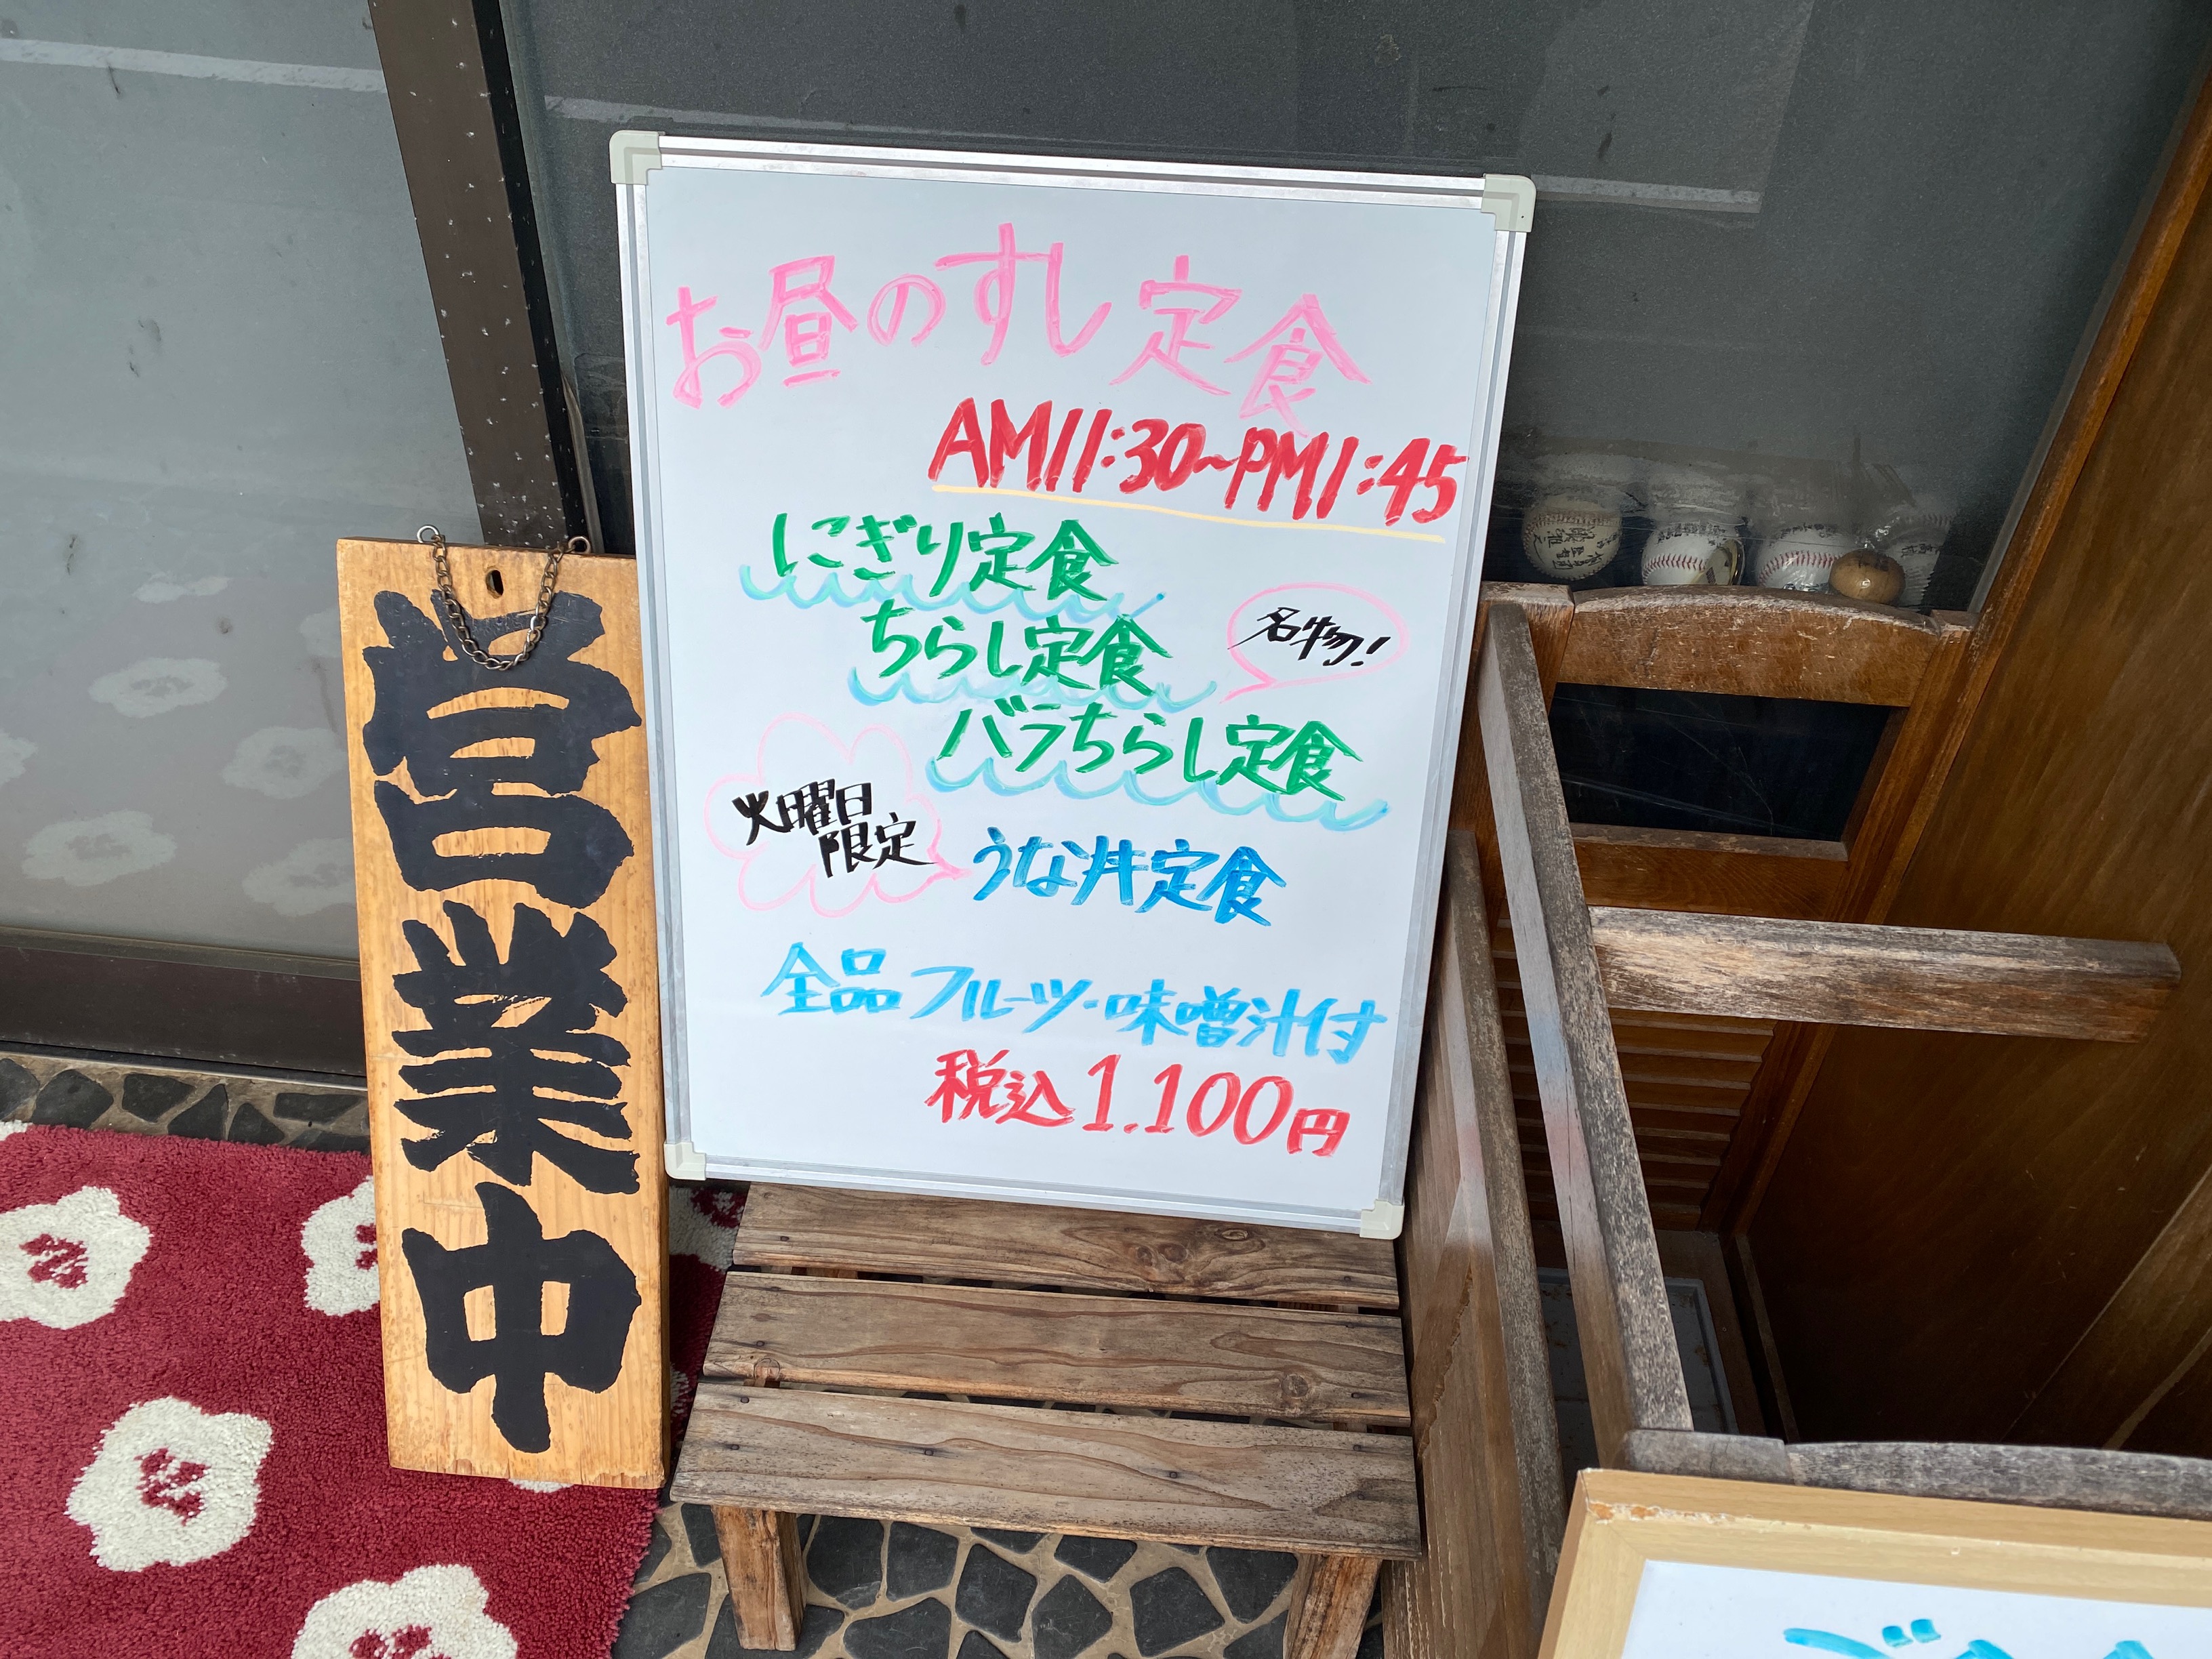 お昼のすし定食
AM11:30~PM1:45
にぎり定食
ちらし定食
名物!
バラちらし定食
火曜日
限定
うな丼定食
全品フルーツ・味噌汁付
税込1.100円
営業中